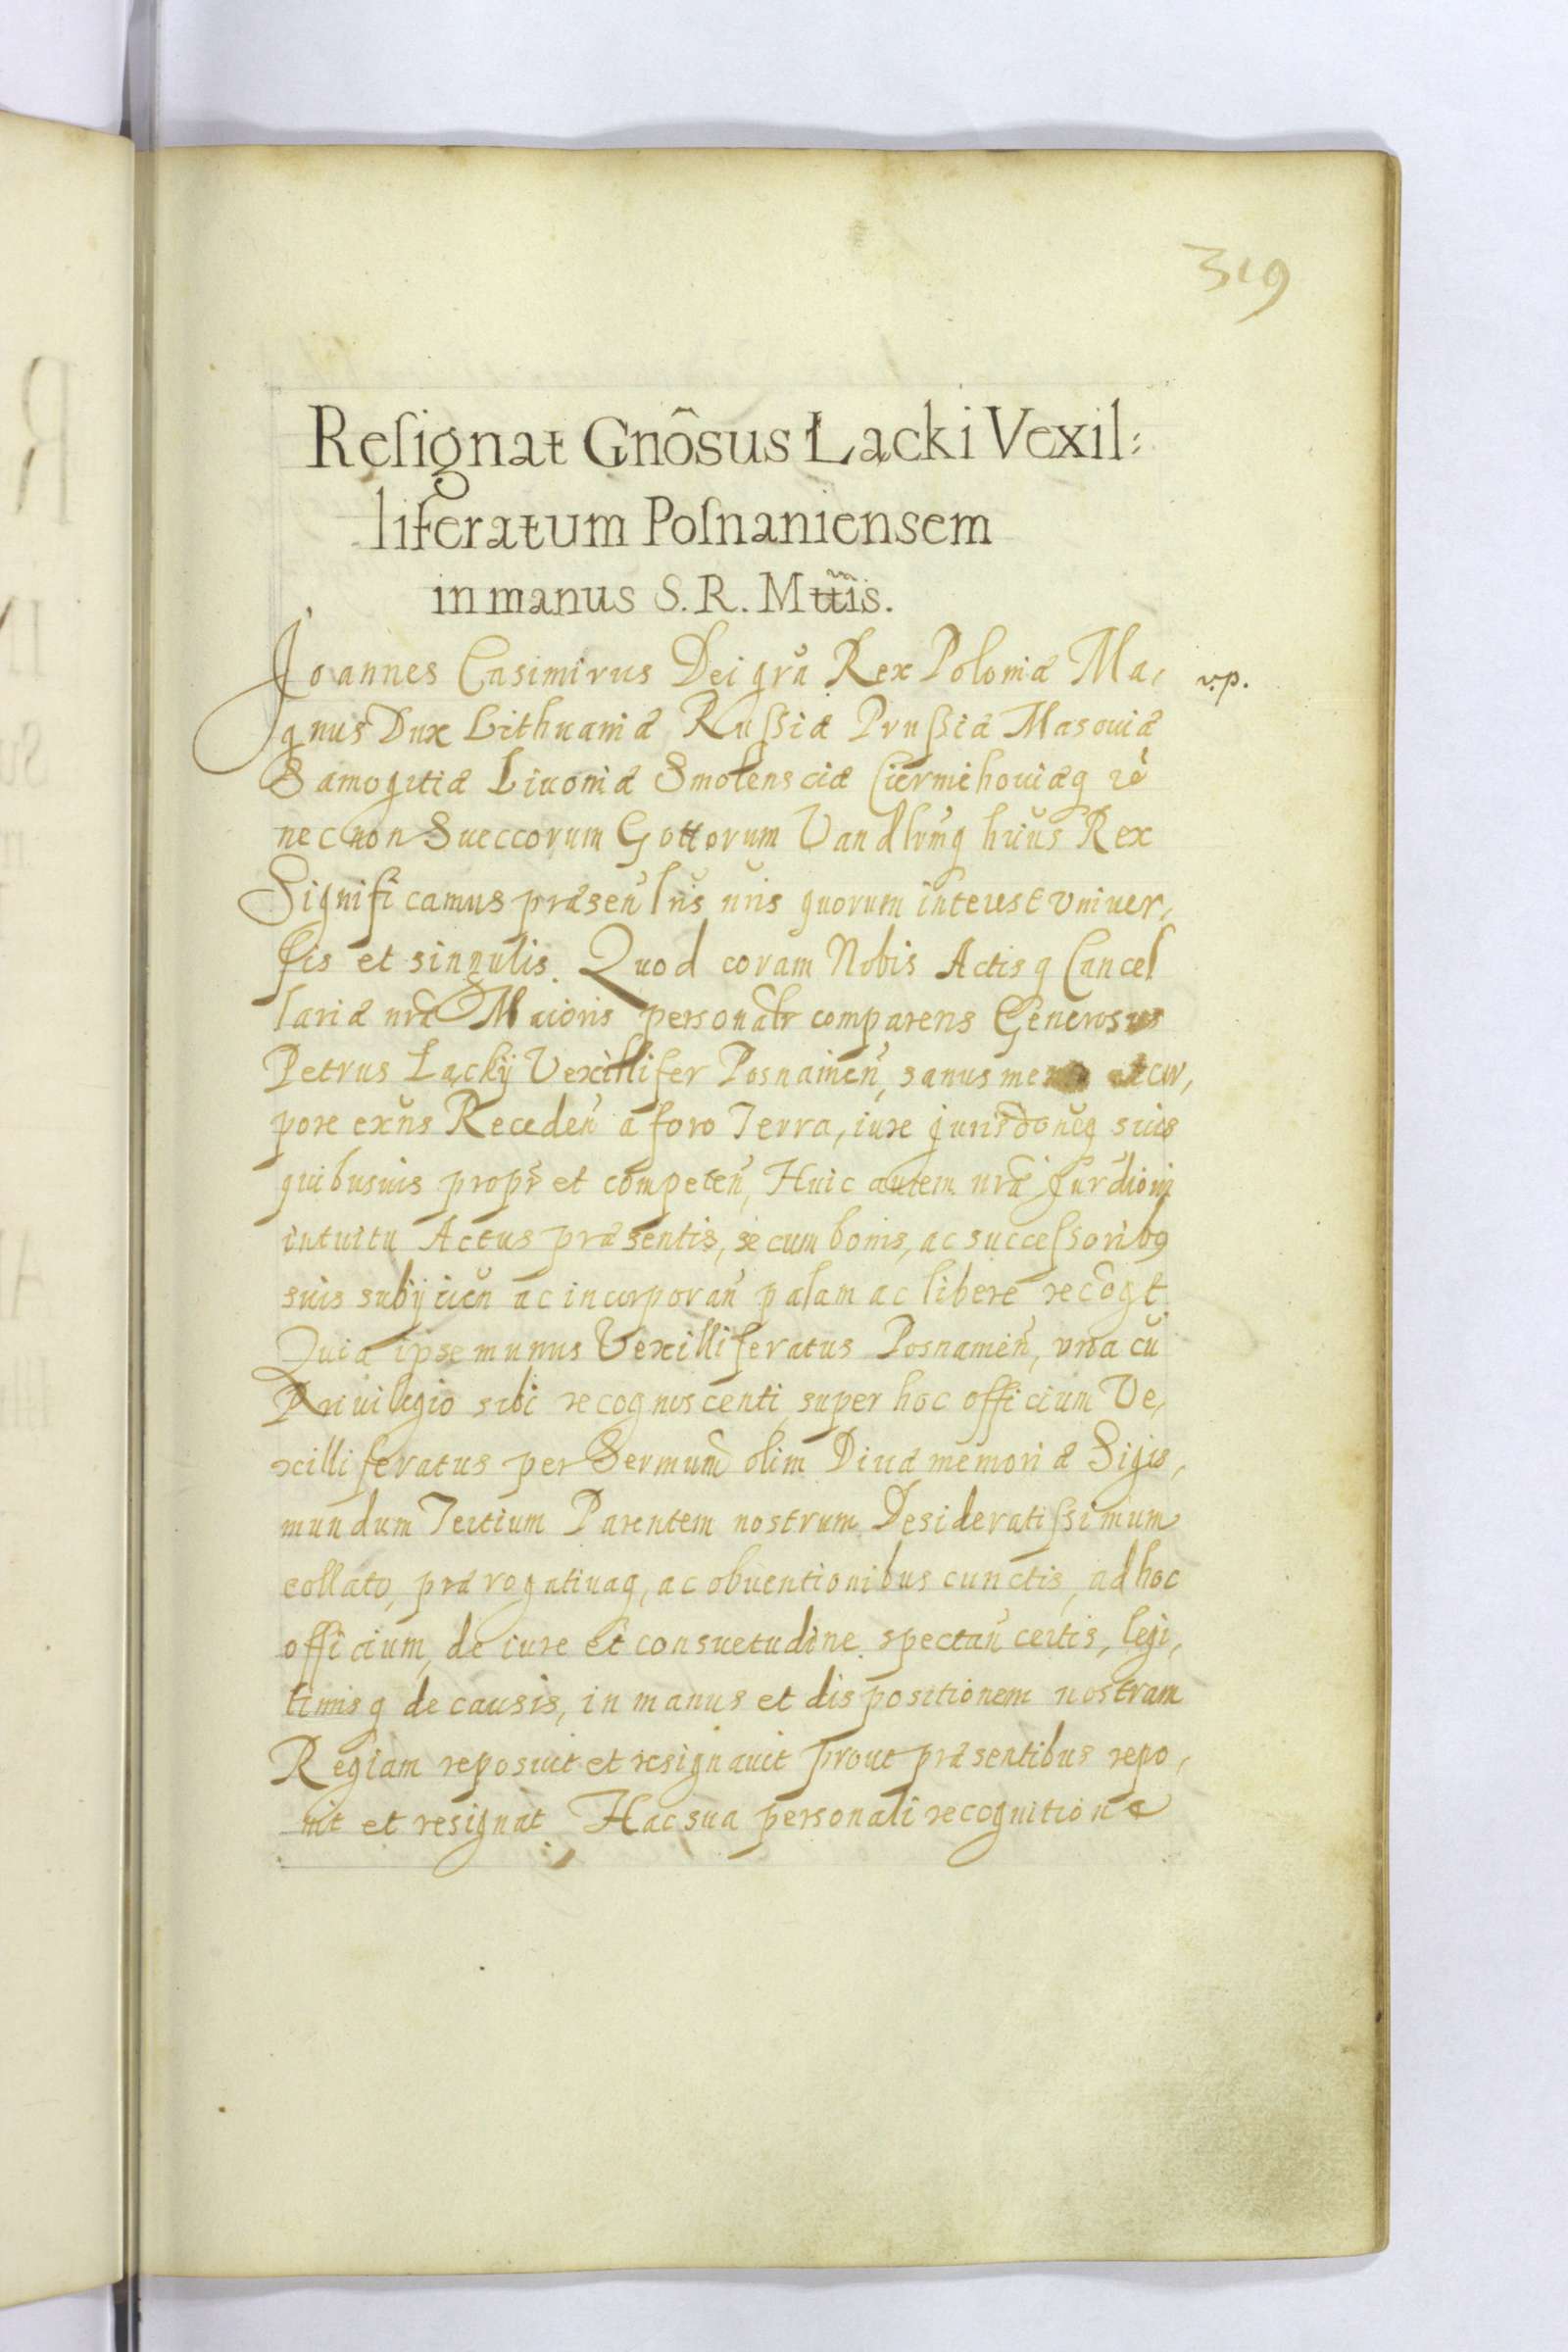 319
Reſignat Gnôsus Łącki Vexil:
liferatum Poſnaniensem
in manus S. R. Mttis.
Joannes Casimirus Dei gra Rex Poloniæ Ma,
v. p.
gnus Dux Lithuaniæ Rußiæ Prußiæ Masouiæ
Samogitiæ Liuoniæ Smolensciæ Czernihouiæq
nec non Sueccorum Gottorum Vandlrmq huus Rex
Significamus præsen lris nris quorum interest vniuer,
sis et singulis. Quod coram Nobis Actisq Cancel
lariæ nræ Maioris personalr comparens Generosus
Petrus Łącky Vexillifer Posnanien, sanus mente et cor,
pore exns Receden a foro Terra, iure jurisdoneq suis
quibusuis propr et competen, Huic autem nræ Jurdioni
intuitu Actus præsentis, se cum bonis, ac succeßoribq
suis subijcien ac incorporan palam ac libere recogt
Quia ipse munus Vexilliferatus Posnanien, vna cu
Priuilegio sibi recognoscenti super hoc officium Ve,
xilliferatus per Sermum olim Diuæ memoriæ Sigis,
mundum Tertium Parentem nostrum Desideratißimum
collato, prærogatiuaq, ac obuentionibus cunctis, ad hoc
officium, de iure et consuetudine spectan certis, legi,
timisq de causis, in manus et dispositionem nostram
Regiam reposuit et resignauit prout præsentibus repo,
nit et resignat Hac sua personali recognitione